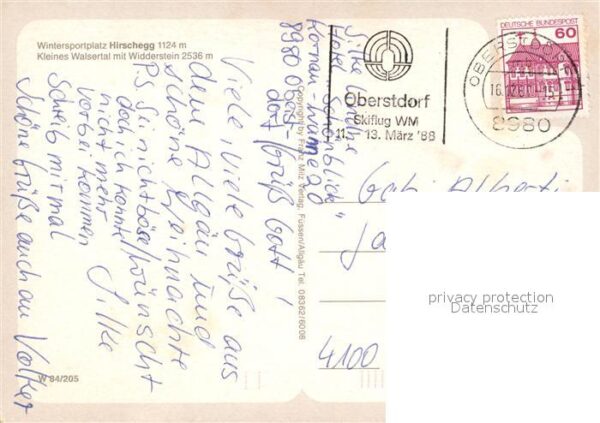 Wintersportplatz Hirschegg 1124 m
Kleines Walsertal mit Widderstein 2536 m
Silke
Hotel "Schönblick"
8980 Oberst-
dorf, Grüß Gott!
Viele, viele Grüße aus
dem Allgäu und
schöne Weihnachte
wünscht
Silke
P.S. Sei nicht böse,
doch ich konnte
nicht mehr
vorbei kommen
Schreib mir mal
Schöne Grüße auch an Volker
W 84/205
Copyright by Franz Milz Verlag, Füssen/Allgäu Tel. 08362/6008
Oberstdorf
Skiflug WM
11. - 13. März '88
OBERSTDORF
8980
DEUTSCHE BUNDESPOST
60
Gabi Alberti
4100
privacy protection
Datenschutz